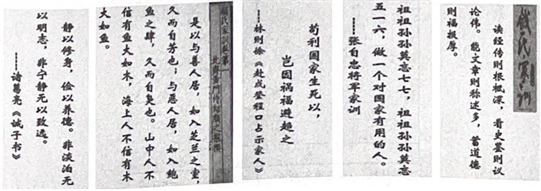 静以修身，俭以养德。非淡泊无
以明志，非宁静无以致远。
——诸葛亮《诫子书》
是以与善人居，如入芝兰之室，
久而自芳也；与恶人居，如入鲍
鱼之肆，久而自臭也。山中人不
信有鱼大如木，海上人不信有木
大如鱼。
苟利国家生死以，
岂因祸福避趋之
——林则徐《赴戍登程口占示家人》
祖祖孙孙莫忘七七，祖祖孙孙莫忘
五一六，做一个对国家有用的人。
——张自忠将军家训
钱氏家训
读经传则根柢深，看史鉴则议
论伟。能文章则称述多，蓄道德
则福报厚。